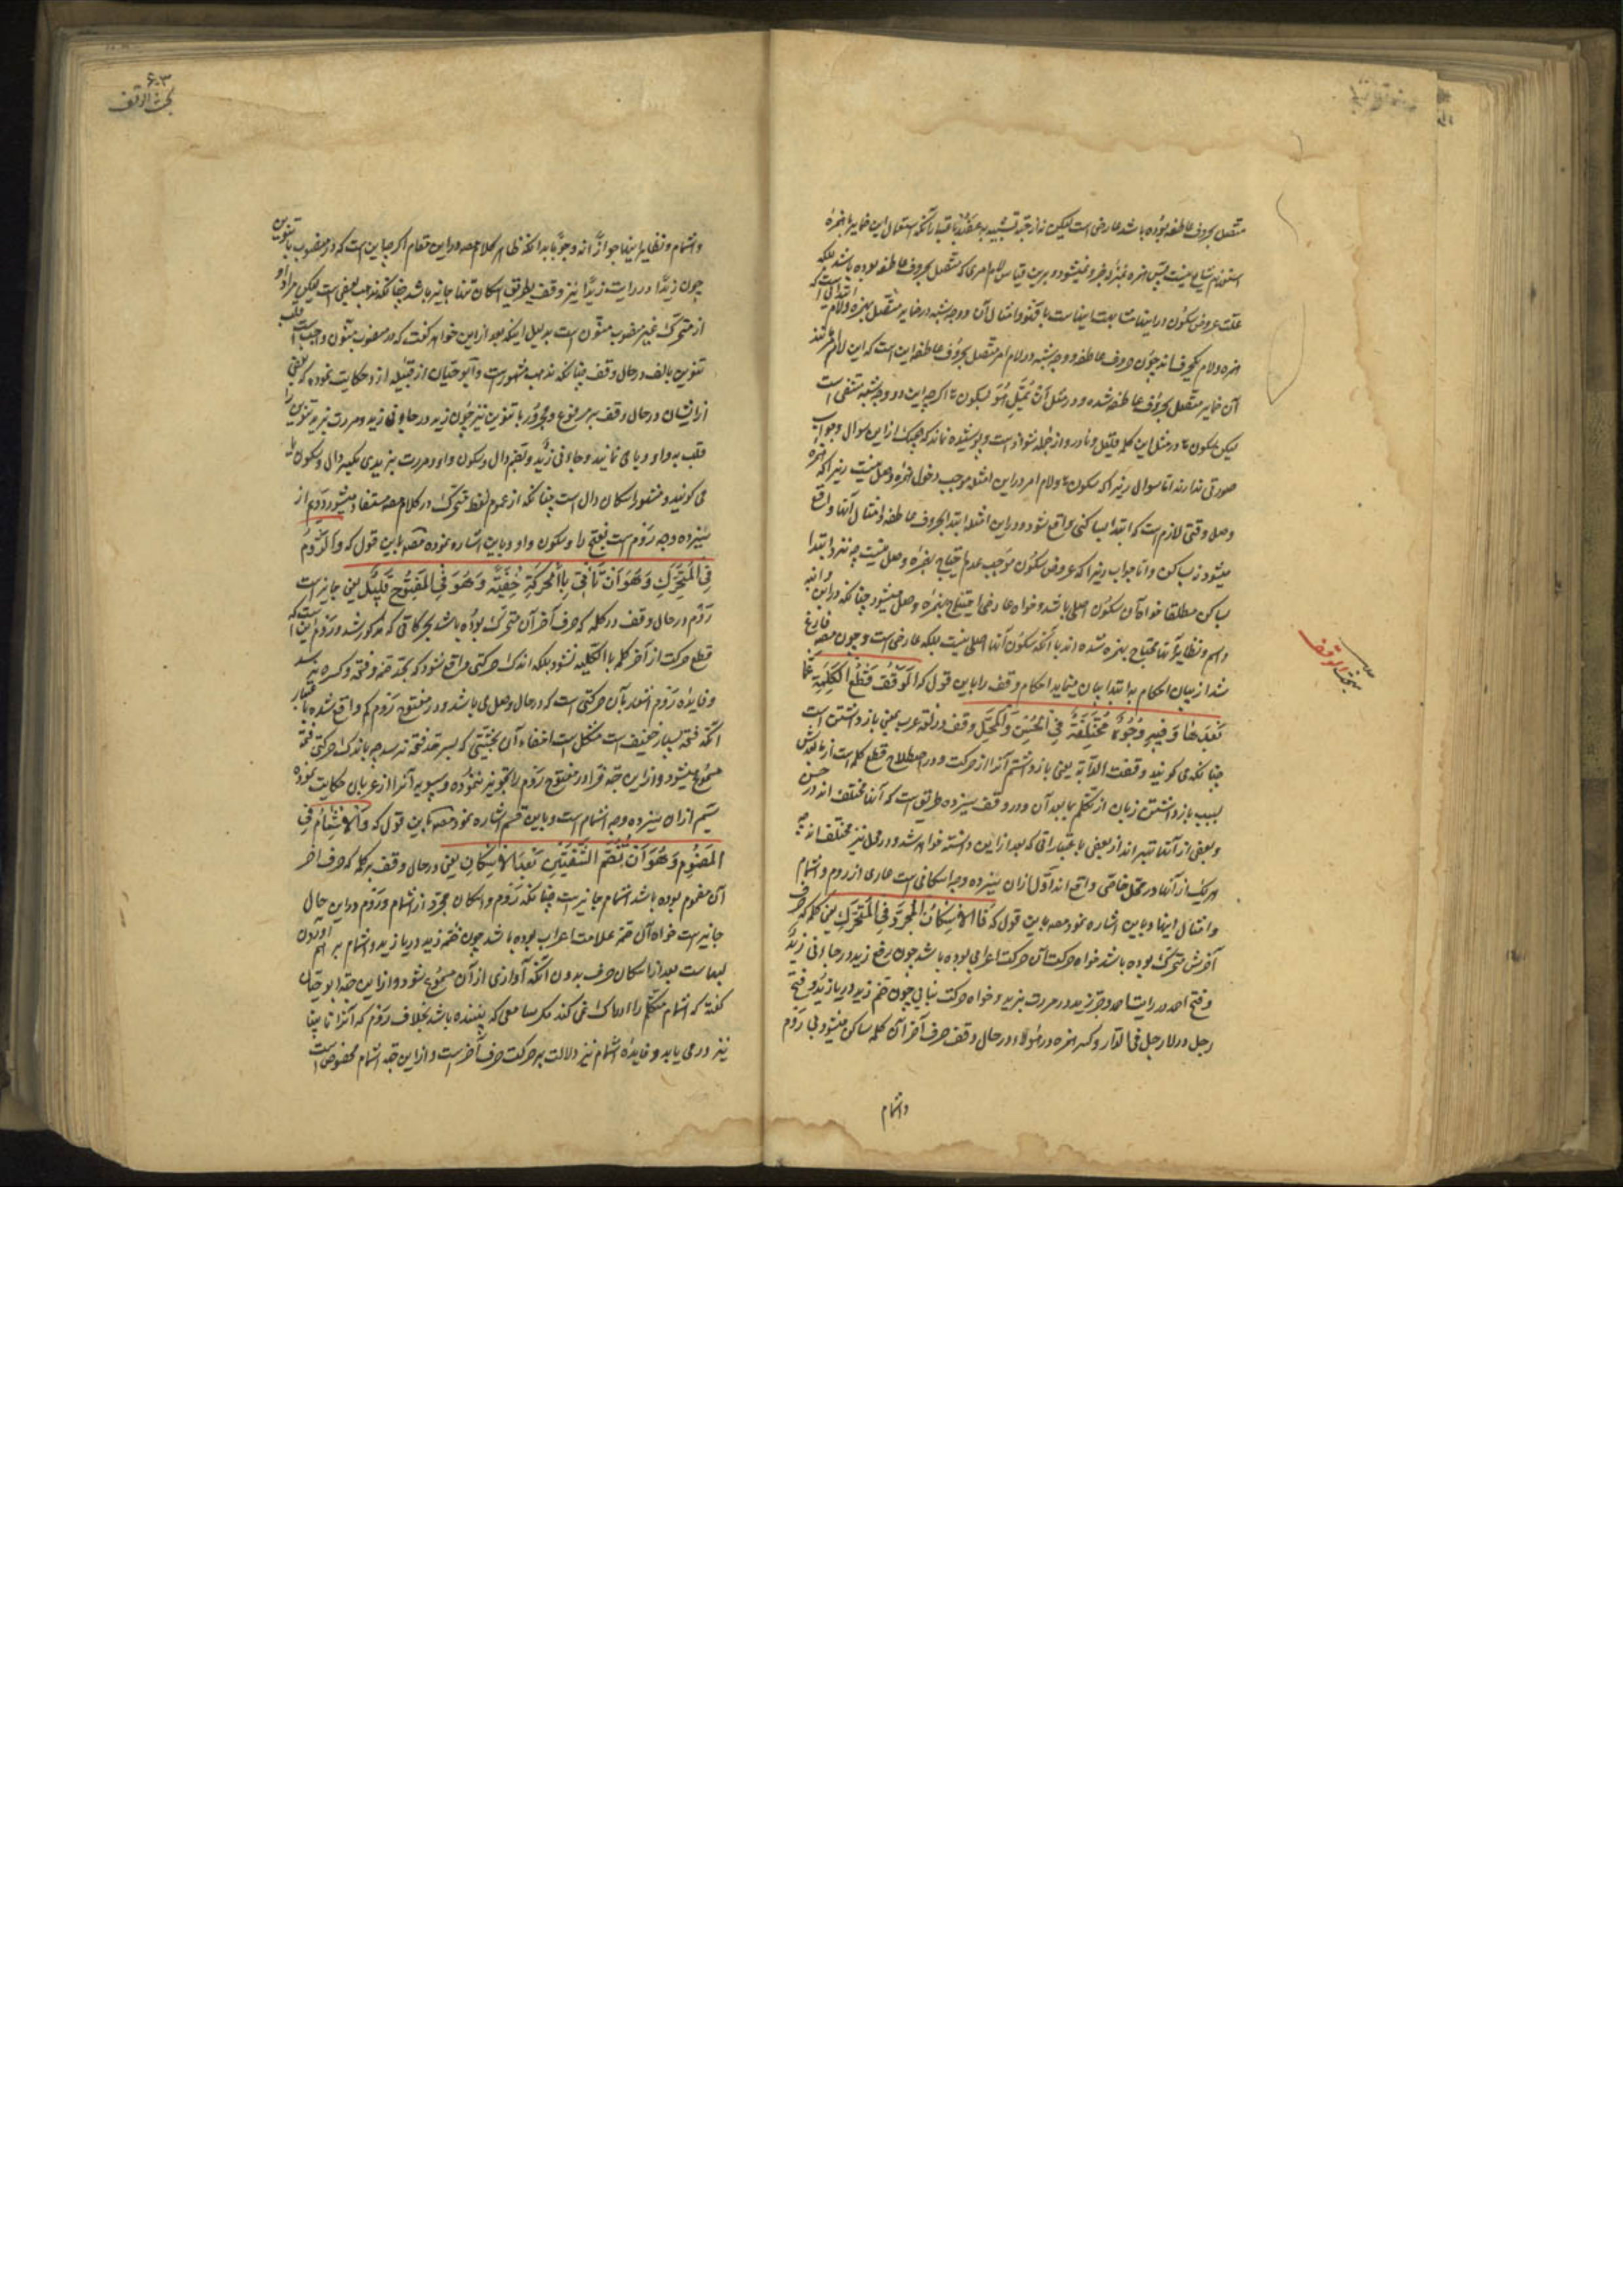 متصل بحروف عاطفه بوده باشد عارضی است لیکن نه از جهة تشبیه به عضد بلکه باعتبار آنکه استعمال این ضمایر با همزهٔ
استفهام شایع نیست پس همزه بمنزلهٔ جزو نمیشود و برین قیاس لام امری که متصل بحروف عاطفه بوده باشد بلکه
علت عروض سکون در اینها مشابهت اینهاست با کتف و امثال آن و وجه شبه در ضمایر متصل بهمزه و لام ابتدا این است که
همزه و لام یکحرفند چون حروف عاطفه و وجه شبه در لام امر متصل بحروف عاطفه این است که این لام مانند
آن ضمایر متصل بحروف عاطفه شده و در مثل ان یمل هو بسکون ها اگر چه این دو وجه شبه منتفی است
لیکن سکون ها در مثل این کلمه قلیل و نادر و از جمله شواذ است و پوشیده نماند که هیچیک از این سوال و جواب
صورتی ندارند اما سوال زیرا که سکون ها و لام امر در این امثله موجب دخول همزهٔ وصل نیست زیرا که همزه
وصل وقتی لازم است که ابتدا بساکنی واقع شود و در این امثله ابتدا بحروف عاطفه و امثال آنها واقع
میشود نه بساکن و اما جواب زیرا که عروض سکون موجب عدم احتیاج بهمزهٔ وصل نیست چه نزد ابتدا
بساکن مطلقا خواه آن سکون اصلی باشد و خواه عارضی احتیاج بهمزهٔ وصل میشود چنانکه در ابن و ابنه
و اسم و نظایر آنها محتاج بهمزه شده اند با آنکه سکون آنها اصلی نیست بلکه عارضی است و چون مصه فارغ
شد از بیان احکام ابتدا بیان مینماید احکام وقف را باین قول که الوقف قطع الکلمة عما
بعدها و فیه وجوه مختلفة فی الحسن و المحل وقف در لغة عرب بمعنی بازداشتن است
چنانکه می گویند وقفت الدابة یعنی بازداشتم آنرا از حرکت و در اصطلاح قطع کلمه است از ما بعدش
بسبب بازداشتن زبان از تکلم بما بعد آن و در وقف سیزده طریق است که آنها مختلف اند در حسن
و بعضی از آنها بهتر اند از بعضی باعتباراتی که بعد از این دانسته خواهد شد و در محل نیز مختلف اند چه
هر یک از آنها در محل خاصی واقع اند اول از آن سیزده وجه اسکانی است عاری از روم و اشمام
و امثال اینها و باین اشاره نمود مصه باین قول که فالاسکان المجرد فی المتحرک یعنی کلمه که حرف
آخرش متحرک بوده باشد خواه حرکت آن حرکت اعرابی بوده باشد چون رفع زید در جاءنی زید
و فتح احمد در رایت احمد و جر زید در مررت بزید و خواه حرکت بنایی چون ضم زید در یا زید و فتح
رجل در لا رجل فی الدار و کسر همزه در هؤلاء در حال وقف حرف آخر آن کلمه ساکن میشود بی روم
و اشمام
بحث الوقف
۶۰۳
بحث الوقف
و اشمام و نظایر اینها جوازا نه وجوبا بدانکه ظاهر کلام مصه در این مقام اگر چه این است که در منصوب با تنوین
چون زیدا در رایت زیدا نیز وقف بطریق اسکان تنها جایز باشد چنانکه مذهب بعضی است لیکن مراد او
از متحرک غیر منصوب منون است بدلیل اینکه بعد از این خواهد گفت که در منصوب منون واجب است قلب
تنوین بالف در حال وقف چنانکه مذهب مشهور است و ابو حیان از قبیله ازد حکایت نموده که بعضی
از ایشان در حال وقف بر مرفوع و مجرور با تنوین نیز چون زید در جاءنی زید و مررت بزید تنوین را
قلب به واو و یا می نمایند و جاءنی زیدو بضم دال و سکون واو و مررت بزیدی بکسر دال و سکون یا
می گویند و مقصور اسکان دال است چنانکه از عموم لفظ متحرک در کلام مصه مستفاد میشود دویم از
سیزده وجه روم است بفتح را و سکون واو و باین اشاره نموده مصه باین قول که و الروم
فی المتحرک و هو ان تاتی بالحرکة خفیة و هو فی المفتوح قلیل یعنی جایز است
روم در حال وقف در کلمه که حرف آخر آن متحرک بوده باشد بحرکاتی که مذکور شد و روم این است که
قطع حرکت از آخر کلمه بالکلیه نشود بلکه اندک حرکتی واقع شود که بحد ضمه و فتحه و کسره نرسد
و فایدهٔ روم اشعار بآن حرکتی است که در حال وصل می باشد و در مفتوح روم کم واقع شده باعتبار
آنکه فتحه بسیار خفیف است مشکل است اخفاء آن بحیثیتی که بسر حد فتحه نرسد چه باندک حرکتی فتحه
مسموع میشود و از این جهة فرا در مفتوح روم را تجویز ننموده و سیبویه آنرا از عربان حکایت نموده
سیم از آن سیزده وجه اشمام است و باین قسم اشاره نمود مصه باین قول که و الاشمام فی
المضموم و هو ان تضم الشفتین بعد الاسکان یعنی در حال وقف بر کلمه که حرف آخر
آن مضموم بوده باشد اشمام جایز است چنانکه روم و اسکان مجرد از اشمام و روم در این حال
جایز است خواه آن ضمه علامت اعراب بوده باشد چون ضمه زید در یا زید و اشمام بر هم آوردن
لبهاست بعد از اسکان حرف بدون آنکه آوازی از آن مسموع شود و از این جهة ابو حیان
گفته که اشمام متکلم را ادراک نمی کند مگر سامعی که بیننده باشد بخلاف روم که آنرا نابینا
نیز در می یابد و فایدهٔ اشمام نیز دلالت بر حرکت حرف آخر است و از این جهة اشمام مخصوص است